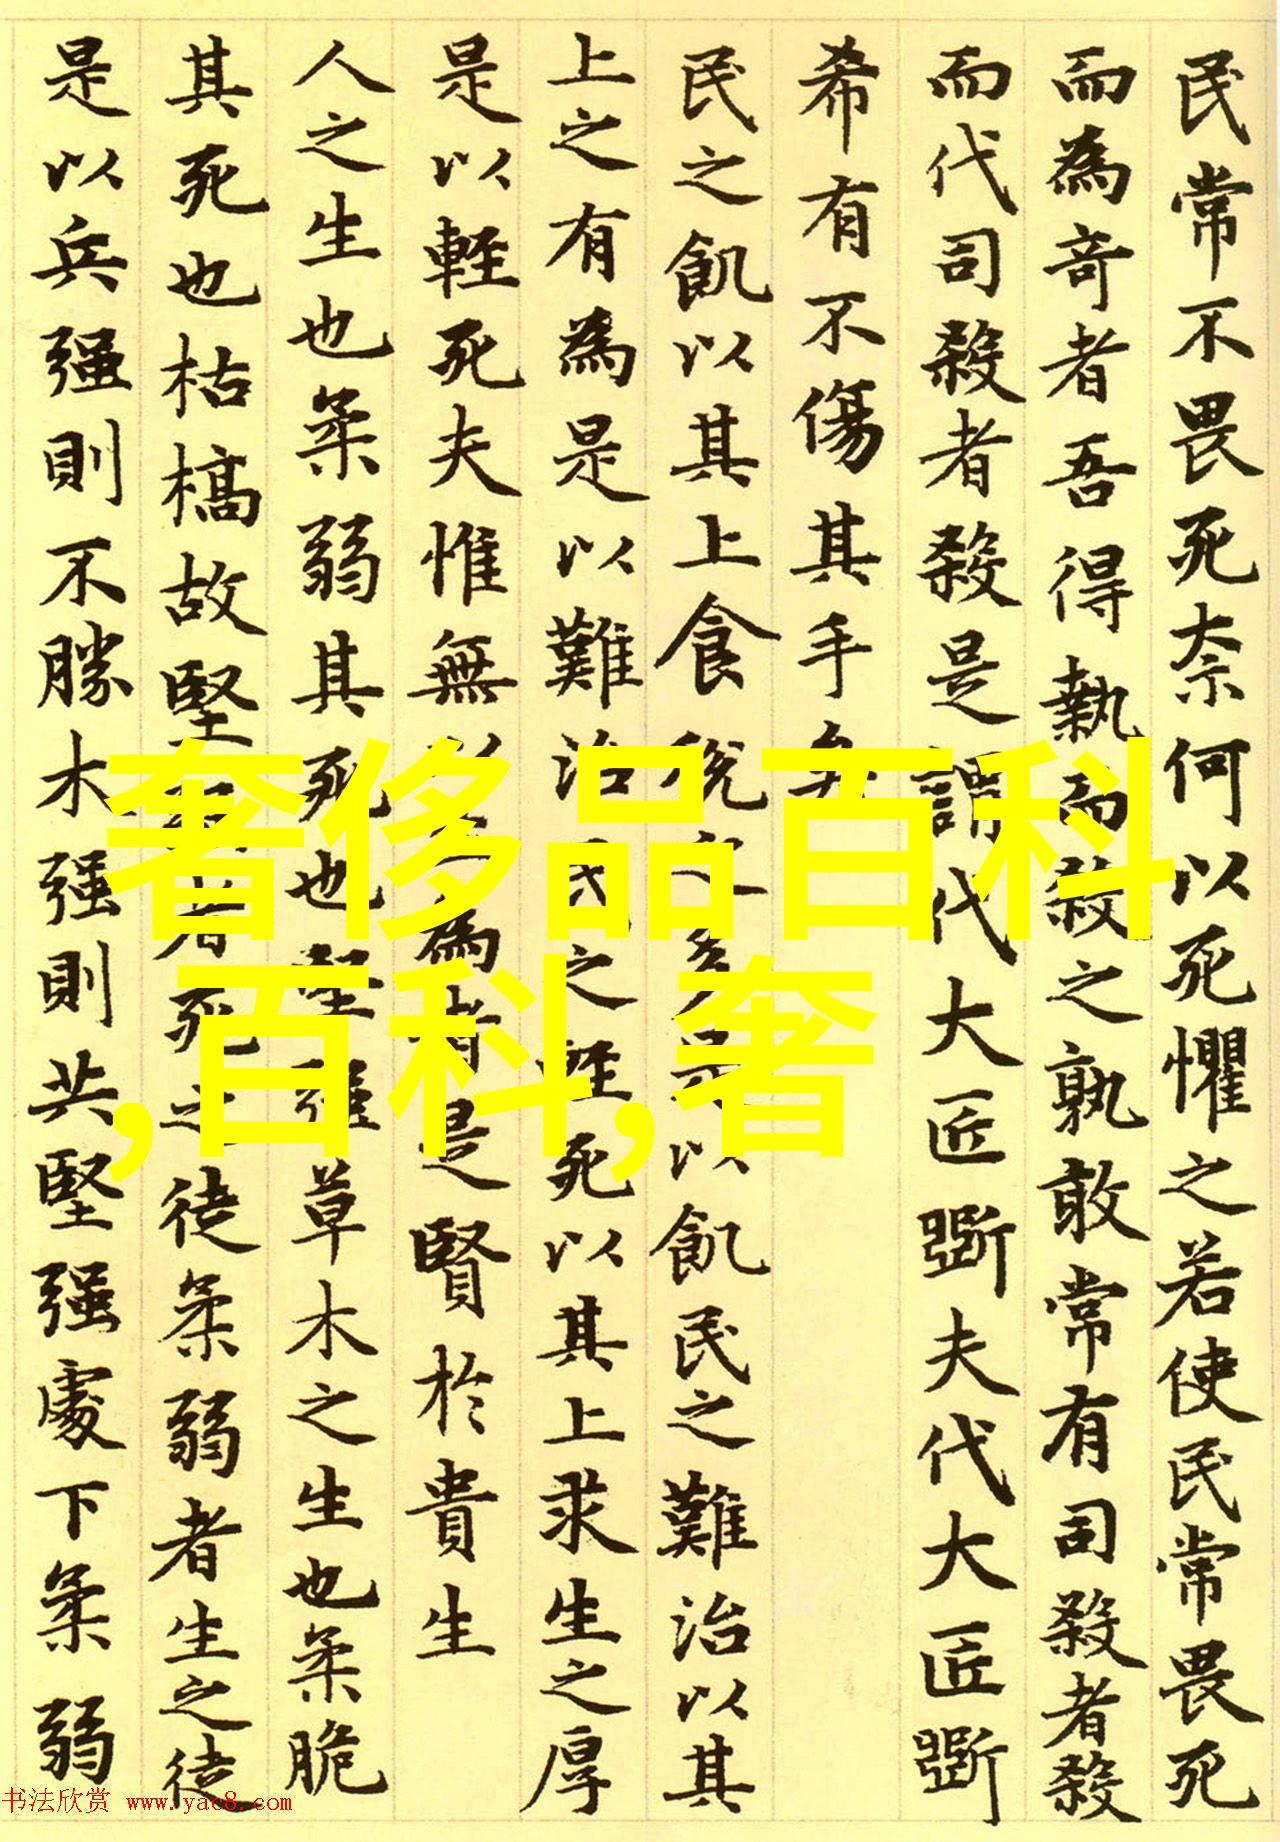 民常不畏死奈何以死懼之若使民常畏死
而為奇者吾得執而殺之孰敢常有司殺者殺
而代司殺者殺是謂代大匠斲夫代大匠斲
希有不傷其手矣
民之飢以其上食稅之多是以飢民之難治以其
上之有為是以難治民之輕死以其上求生之厚
是以輕死夫惟無以生為者是賢於貴生
人之生也柔弱其死也堅强草木之生也柔脆
其死也枯槁故堅强者死之徒柔弱者生之徒
是以兵强則不勝木强則共堅强處下柔弱
奢侈品百科
,百科,奢
书法欣赏 www.yac8.com